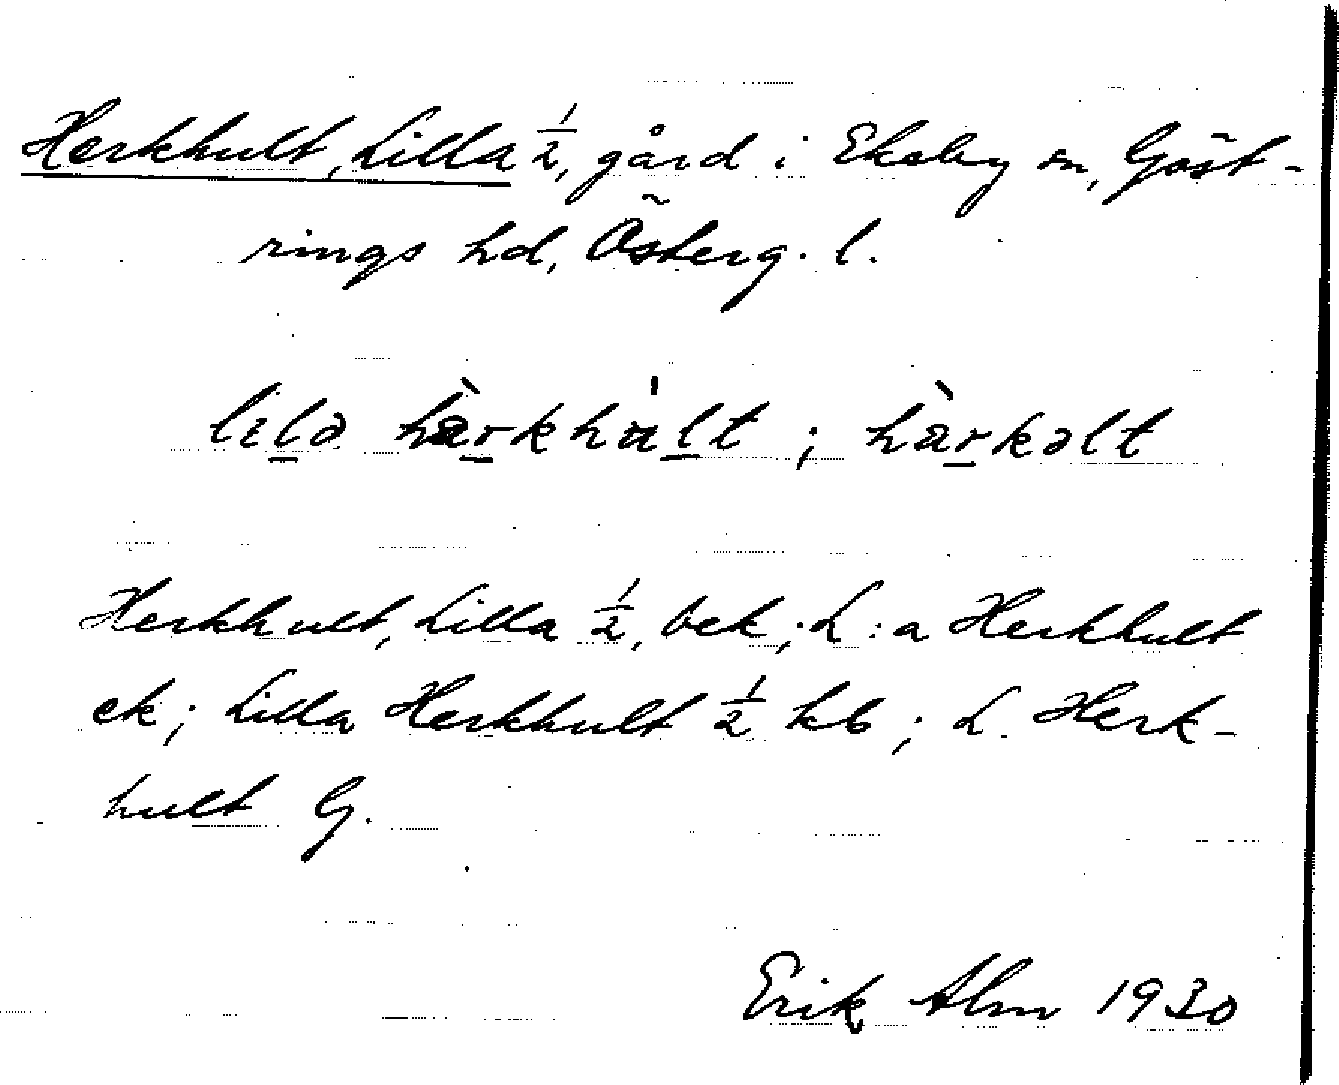 Herkhult, Lilla 1/2, gård i Ekeby sn, Göst-
rings hd, Österg. l.
lɩlə hàrkhu̇lt ; hàrkəlt
Herkhult, Lilla 1/2, bek; L:a Herkhult
ek; Lilla Herkhult 1/2 hb; L. Herk-
hult G.
Erik Alm 1930